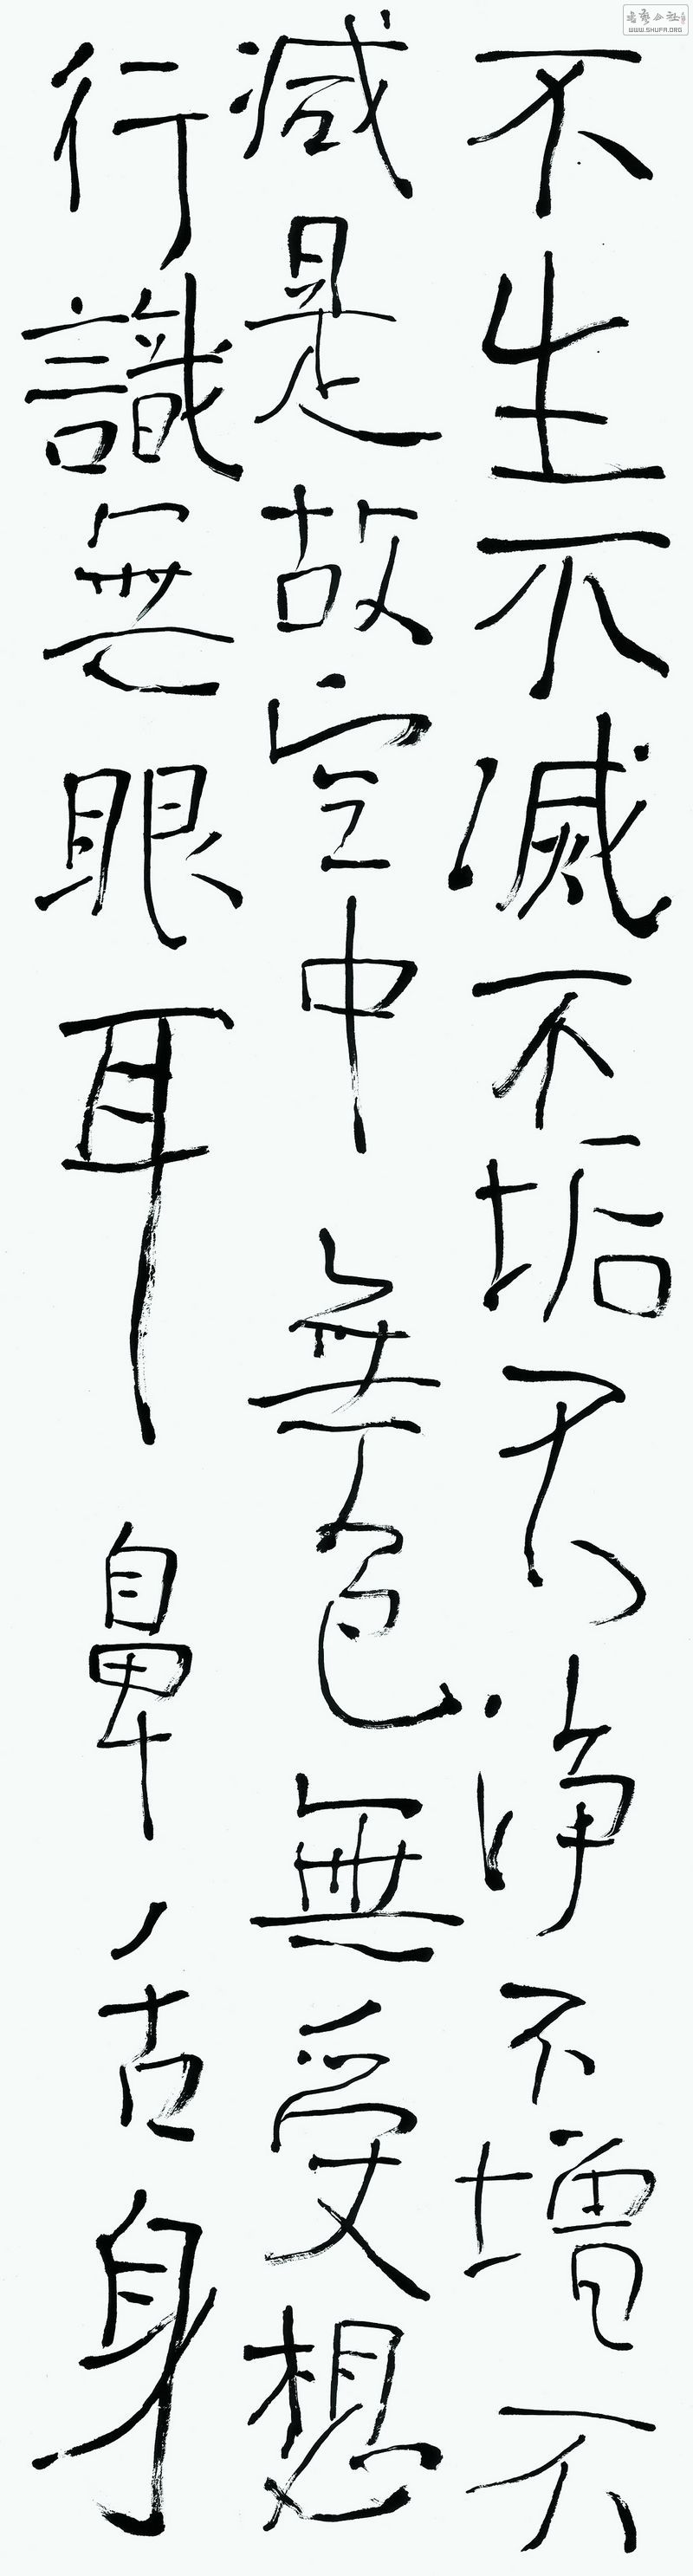 不生不滅不垢不淨不增不
減是故空中無色無受想
行識無眼耳鼻舌身
WWW.SHUFA.ORG